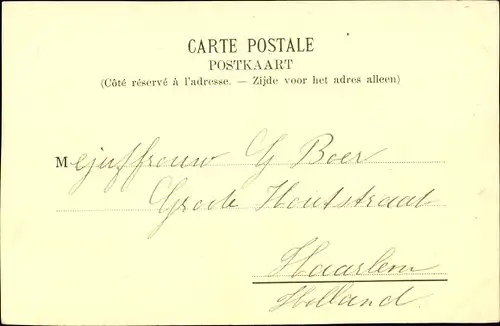 CARTE POSTALE
POSTKAART
(Côté réservé à l'adresse. — Zijde voor het adres alleen)
Mejuffrouw G Boer
Groote Houtstraat
Haarlem
Holland.